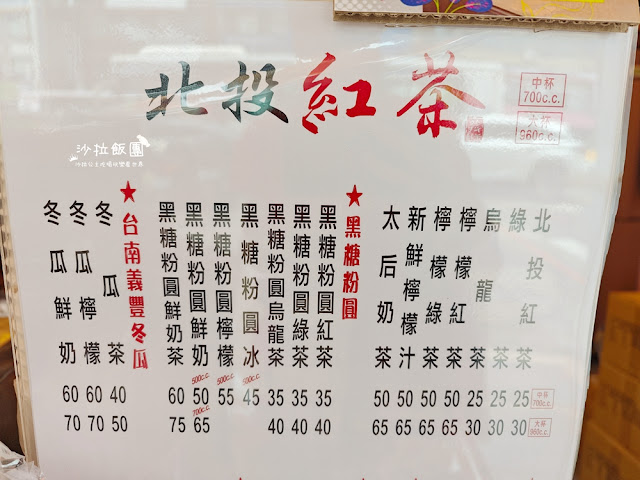 北投紅茶
中杯
700c.c.
大杯
960c.c.
沙拉飯團
北投紅茶 25 30
綠茶 25 30
烏龍茶 25 30
檸檬紅茶 50 65
檸檬綠茶 50 65
新鮮檸檬汁 50 65
太后奶茶 50 65
中杯
700c.c.
大杯
960c.c.
★黑糖粉圓
黑糖粉圓紅茶 35 40
黑糖粉圓綠茶 35 40
黑糖粉圓烏龍茶 35 40
黑糖粉圓冰 500c.c. 45
黑糖粉圓檸檬 500c.c. 55
黑糖粉圓鮮奶 500c.c. 50 700c.c. 65
黑糖粉圓鮮奶茶 60 75
★台南義豐冬瓜
冬瓜茶 40 50
冬瓜檸檬 60 70
冬瓜鮮奶 60 70